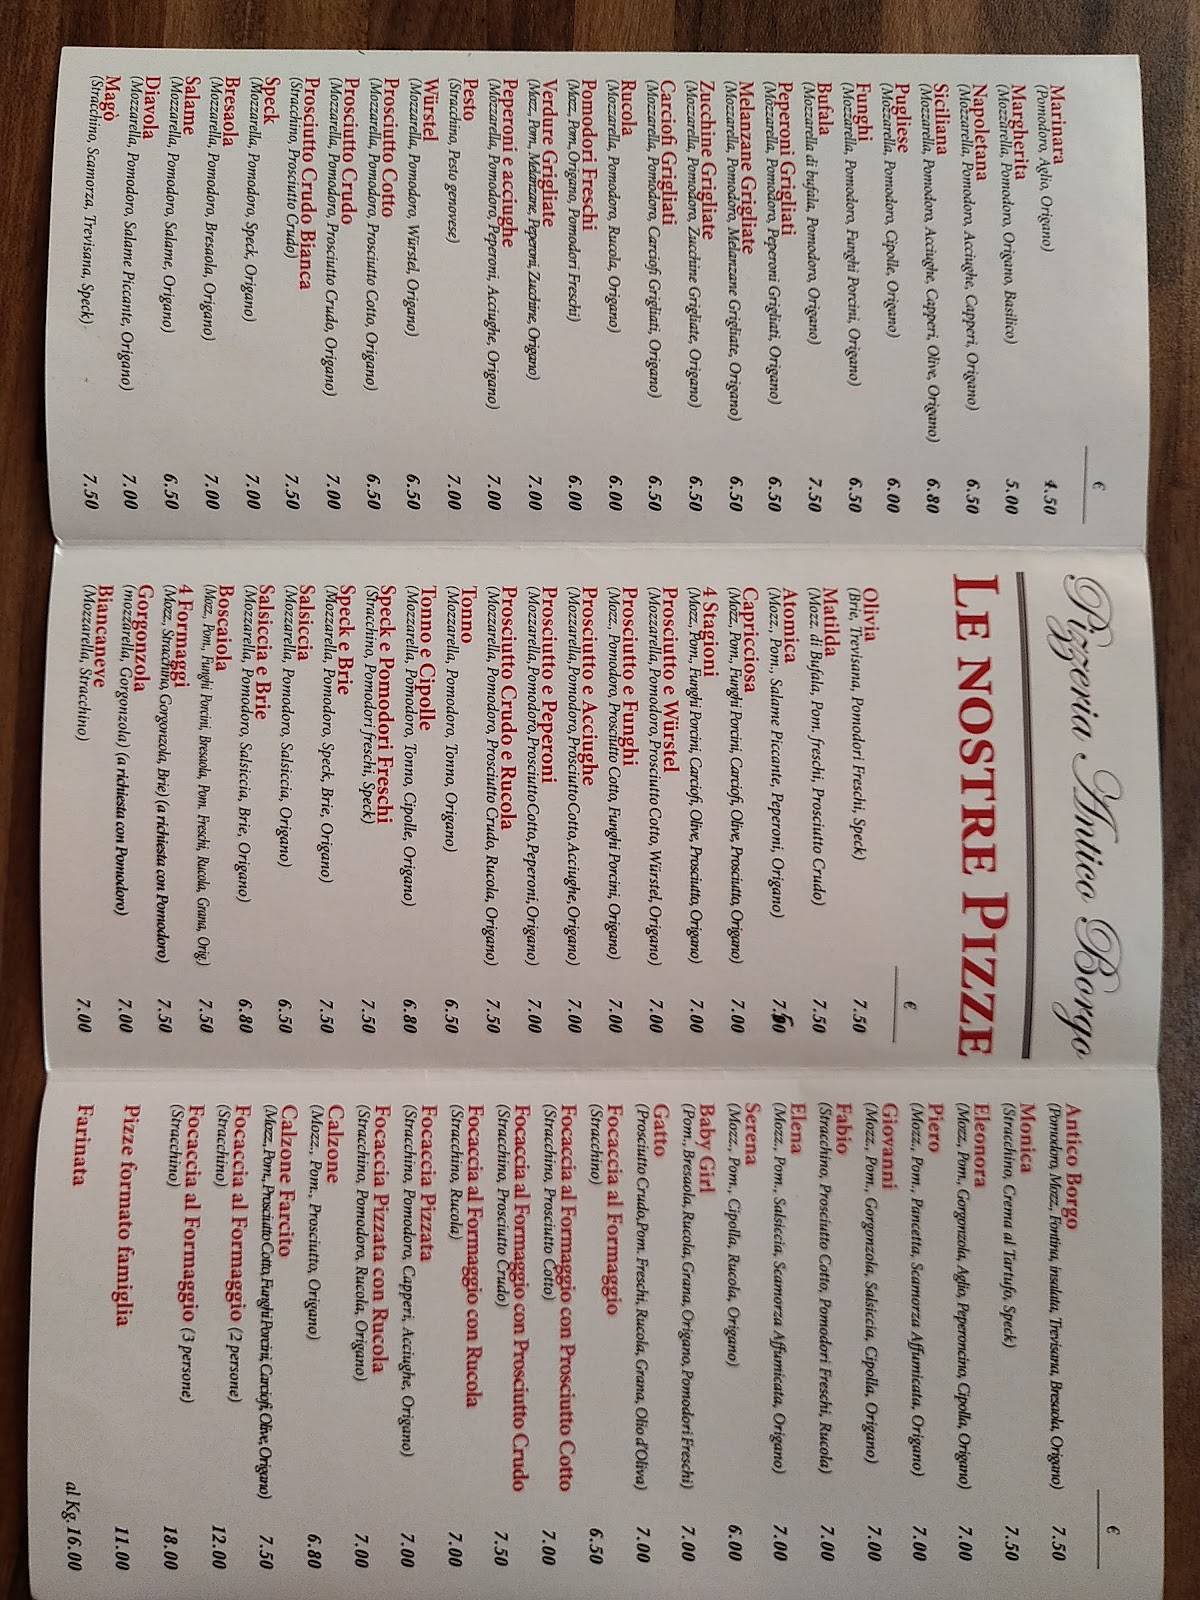 €
Marinara 4.50
(Pomodoro, Aglio, Origano)
Margherita 5.00
(Mozzarella, Pomodoro, Origano, Basilico)
Napoletana 6.50
(Mozzarella, Pomodoro, Acciughe, Capperi, Origano)
Siciliana 6.80
(Mozzarella, Pomodoro, Acciughe, Capperi, Olive, Origano)
Pugliese 6.00
(Mozzarella, Pomodoro, Cipolle, Origano)
Funghi 6.50
(Mozzarella, Pomodoro, Funghi Porcini, Origano)
Bufala 7.50
(Mozzarella di bufala, Pomodoro, Origano)
Peperoni Grigliati 6.50
(Mozzarella, Pomodoro, Peperoni Grigliati, Origano)
Melanzane Grigliate 6.50
(Mozzarella, Pomodoro, Melanzane Grigliate, Origano)
Zucchine Grigliate 6.50
(Mozzarella, Pomodoro, Zucchine Grigliate, Origano)
Carciofi Grigliati 6.50
(Mozzarella, Pomodoro, Carciofi Grigliati, Origano)
Rucola 6.00
(Mozzarella, Pomodoro, Rucola, Origano)
Pomodori Freschi 6.00
(Mozz., Pom., Origano, Pomodori Freschi)
Verdure Grigliate 7.00
(Mozz., Pom., Melanzane, Peperoni, Zucchine, Origano)
Peperoni e acciughe 7.00
(Mozzarella, Pomodoro, Peperoni, Acciughe, Origano)
Pesto 7.00
(Stracchino, Pesto genovese)
Würstel 6.50
(Mozzarella, Pomodoro, Würstel, Origano)
Prosciutto Cotto 6.50
(Mozzarella, Pomodoro, Prosciutto Cotto, Origano)
Prosciutto Crudo 7.00
(Mozzarella, Pomodoro, Prosciutto Crudo, Origano)
Prosciutto Crudo Bianca 7.50
(Stracchino, Prosciutto Crudo)
Speck 7.00
(Mozzarella, Pomodoro, Speck, Origano)
Bresaola 7.00
(Mozzarella, Pomodoro, Bresaola, Origano)
Salame 6.50
(Mozzarella, Pomodoro, Salame, Origano)
Diavola 7.00
(Mozzarella, Pomodoro, Salame Piccante, Origano)
Magò 7.50
(Stracchino, Scamorza, Trevisana, Speck)
Pizzeria Antico Borgo
LE NOSTRE PIZZE
€
Olivia 7.50
(Brie, Trevisana, Pomodori Freschi, Speck)
Matilda 7.50
(Mozz. di Bufala, Pom. freschi, Prosciutto Crudo)
Atomica
(Mozz., Pom., Salame Piccante, Peperoni, Origano)
Capricciosa 7.00
(Mozz., Pom., Funghi Porcini, Carciofi, Olive, Prosciutto, Origano)
4 Stagioni 7.00
(Mozz., Pom., Funghi Porcini, Carciofi, Olive, Prosciutto, Origano)
Prosciutto e Würstel 7.00
(Mozzarella, Pomodoro, Prosciutto Cotto, Würstel, Origano)
Prosciutto e Funghi 7.00
(Mozz., Pomodoro, Prosciutto Cotto, Funghi Porcini, Origano)
Prosciutto e Acciughe 7.00
(Mozzarella, Pomodoro, Prosciutto Cotto, Acciughe, Origano)
Prosciutto e Peperoni 7.00
(Mozzarella, Pomodoro, Prosciutto Cotto, Peperoni, Origano)
Prosciutto Crudo e Rucola 7.50
(Mozzarella, Pomodoro, Prosciutto Crudo, Rucola, Origano)
Tonno 6.50
(Mozzarella, Pomodoro, Tonno, Origano)
Tonno e Cipolle 6.80
(Mozzarella, Pomodoro, Tonno, Cipolle, Origano)
Speck e Pomodori Freschi 7.50
(Stracchino, Pomodori freschi, Speck)
Speck e Brie 7.50
(Mozzarella, Pomodoro, Speck, Brie, Origano)
Salsiccia 6.50
(Mozzarella, Pomodoro, Salsiccia, Origano)
Salsiccia e Brie 6.80
(Mozzarella, Pomodoro, Salsiccia, Brie, Origano)
Boscaiola 7.50
(Mozz., Pom., Funghi Porcini, Bresaola, Pom. Freschi, Rucola, Grana, Orig.)
4 Formaggi 7.50
(Mozz., Stracchino, Gorgonzola, Brie) (a richiesta con Pomodoro)
Gorgonzola 7.00
(mozzarella, Gorgonzola) (a richiesta con Pomodoro)
Biancaneve 7.00
(Mozzarella, Stracchino)
€
Antico Borgo 7.50
(Pomodoro, Mozz., Fontina, insalata, Trevisana, Bresaola, Origano)
Monica 7.50
(Stracchino, Crema al Tartufo, Speck)
Eleonora 7.00
(Mozz., Pom., Gorgonzola, Aglio, Peperoncino, Cipolla, Origano)
Piero 7.00
(Mozz., Pom., Pancetta, Scamorza Affumicata, Origano)
Giovanni 7.00
(Mozz., Pom., Gorgonzola, Salsiccia, Cipolla, Origano)
Fabio 7.00
(Stracchino, Prosciutto Cotto, Pomodori Freschi, Rucola)
Elena 7.00
(Mozz., Pom., Salsiccia, Scamorza Affumicata, Origano)
Serena 6.00
(Mozz., Pom., Cipolla, Rucola, Origano)
Baby Girl 7.00
(Pom., Bresaola, Rucola, Grana, Origano, Pomodori Freschi)
Gatto 7.00
(Prosciutto Crudo, Pom. Freschi, Rucola, Grana, Olio d'Oliva)
Focaccia al Formaggio 6.50
(Stracchino)
Focaccia al Formaggio con Prosciutto Cotto 7.00
(Stracchino, Prosciutto Cotto)
Focaccia al Formaggio con Prosciutto Crudo 7.50
(Stracchino, Prosciutto Crudo)
Focaccia al Formaggio con Rucola 7.00
(Stracchino, Rucola)
Focaccia Pizzata 7.00
(Stracchino, Pomodoro, Capperi, Acciughe, Origano)
Focaccia Pizzata con Rucola 7.00
(Stracchino, Pomodoro, Rucola, Origano)
Calzone 6.80
(Mozz., Pom., Prosciutto, Origano)
Calzone Farcito 7.50
(Mozz., Pom., Prosciutto Cotto, Funghi Porcini, Carciofi, Olive, Origano)
Focaccia al Formaggio (2 persone) 12.00
(Stracchino)
Focaccia al Formaggio (3 persone) 18.00
(Stracchino)
Pizze formato famiglia 11.00
Farinata al Kg.16.00